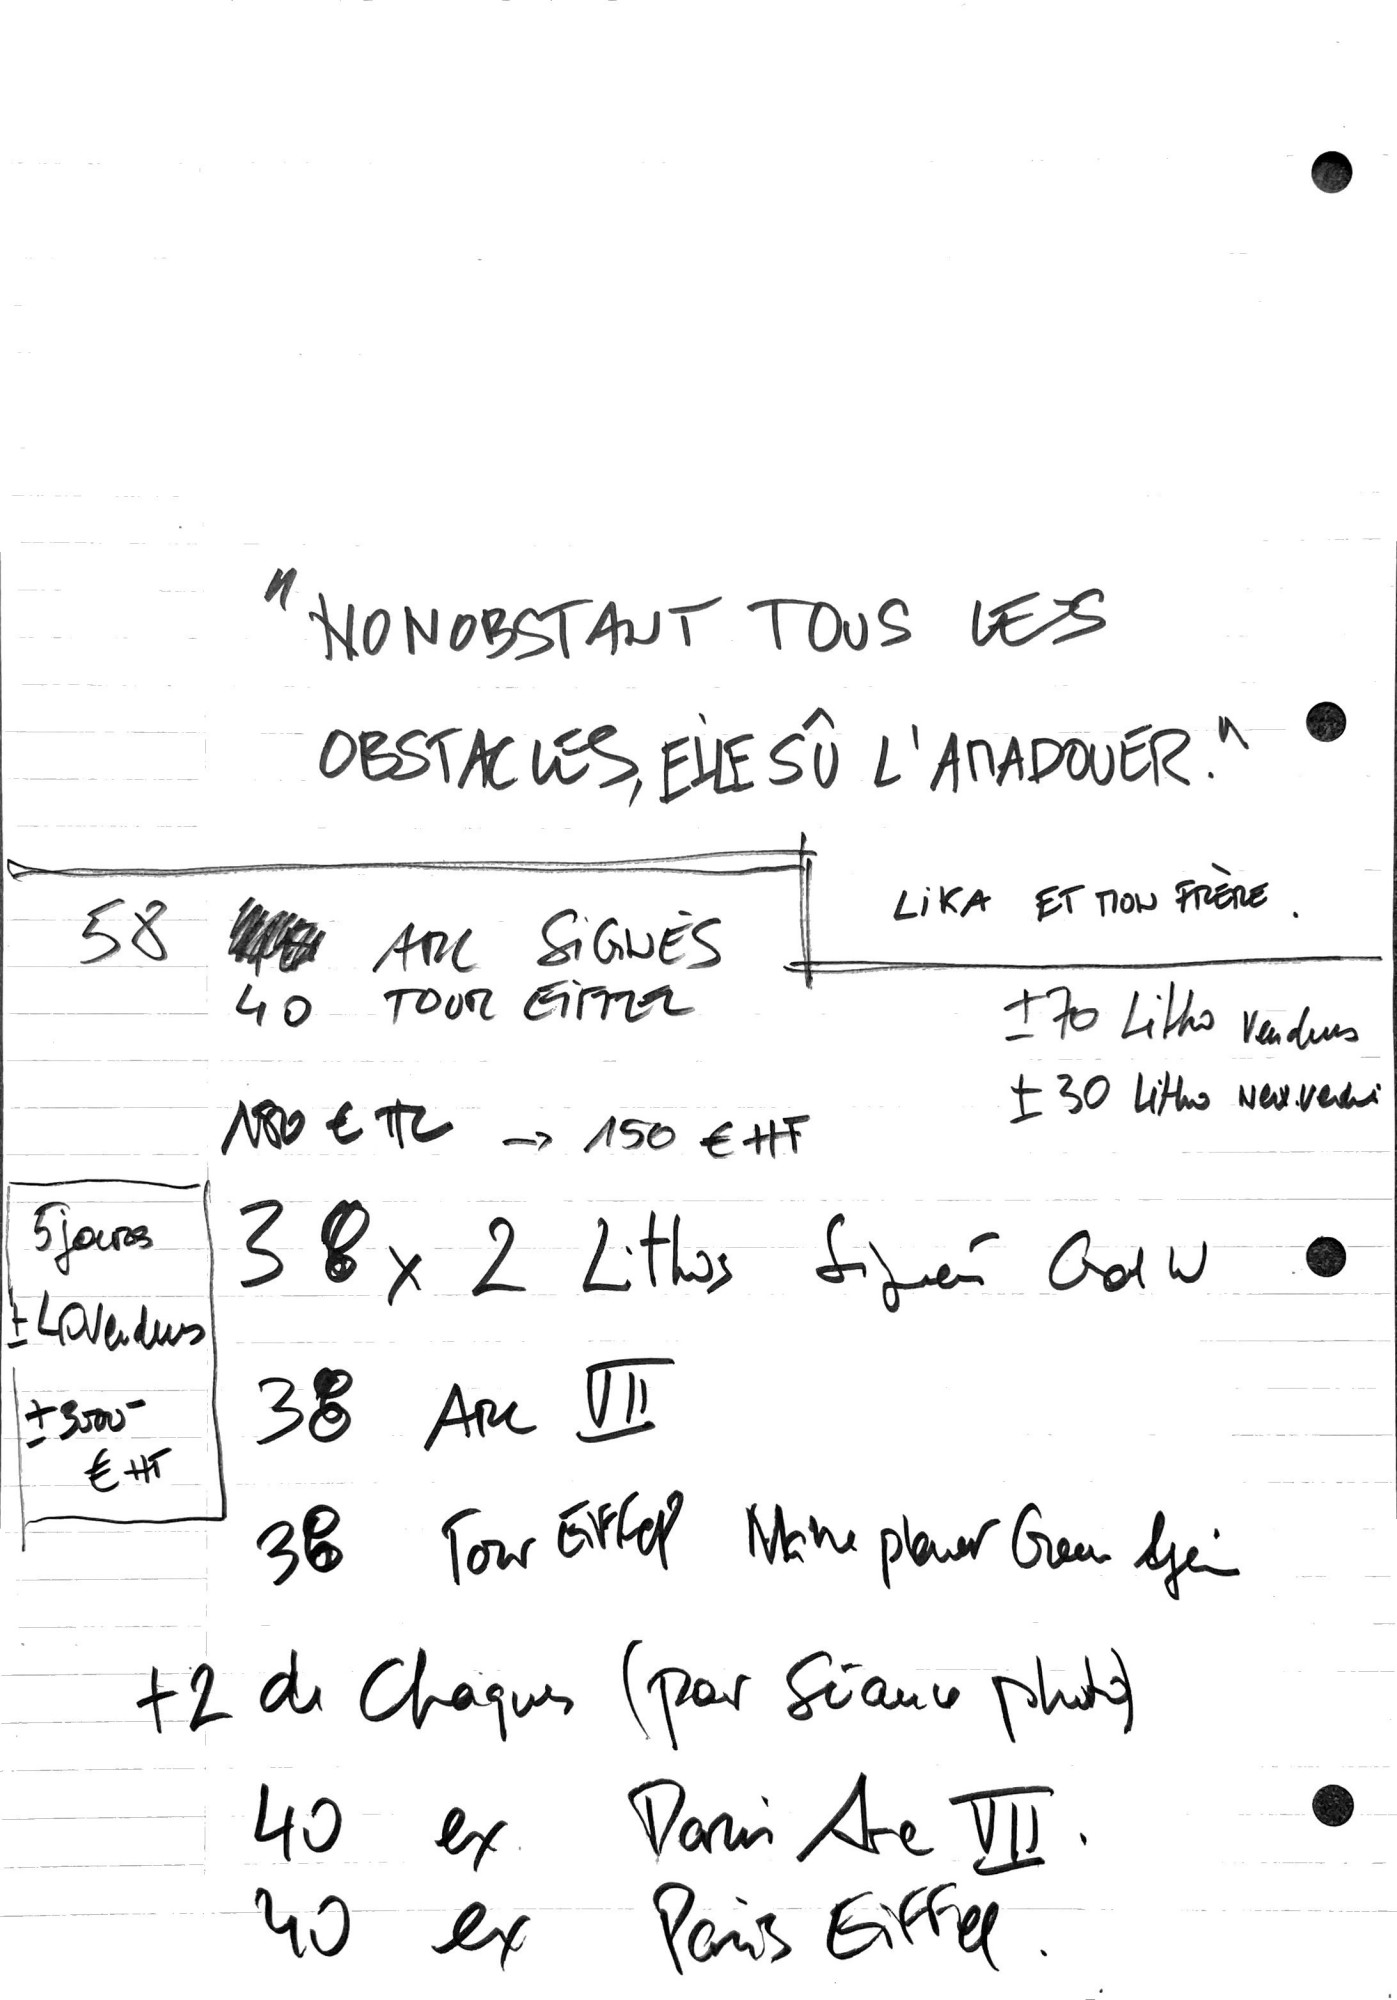 "NONOBSTANT TOUS LES
OBSTACLES, ELLE SÛ L'AMADOUER."
LIKA ET MON FRÈRE.
58 ARC SIGNÉS
40 TOUR EIFFEL
±70 Litho vendues
±30 Litho
180 € TTC → 150 € HT
5 jours
±40 vendues
±3000-
€ HT
38 x 2 Lithos Signées
38 Arc VII
38 Tour Eiffel
+2 de Chaques (par Séance photo)
40 ex. Paris Arc VII.
40 ex Paris Eiffel.